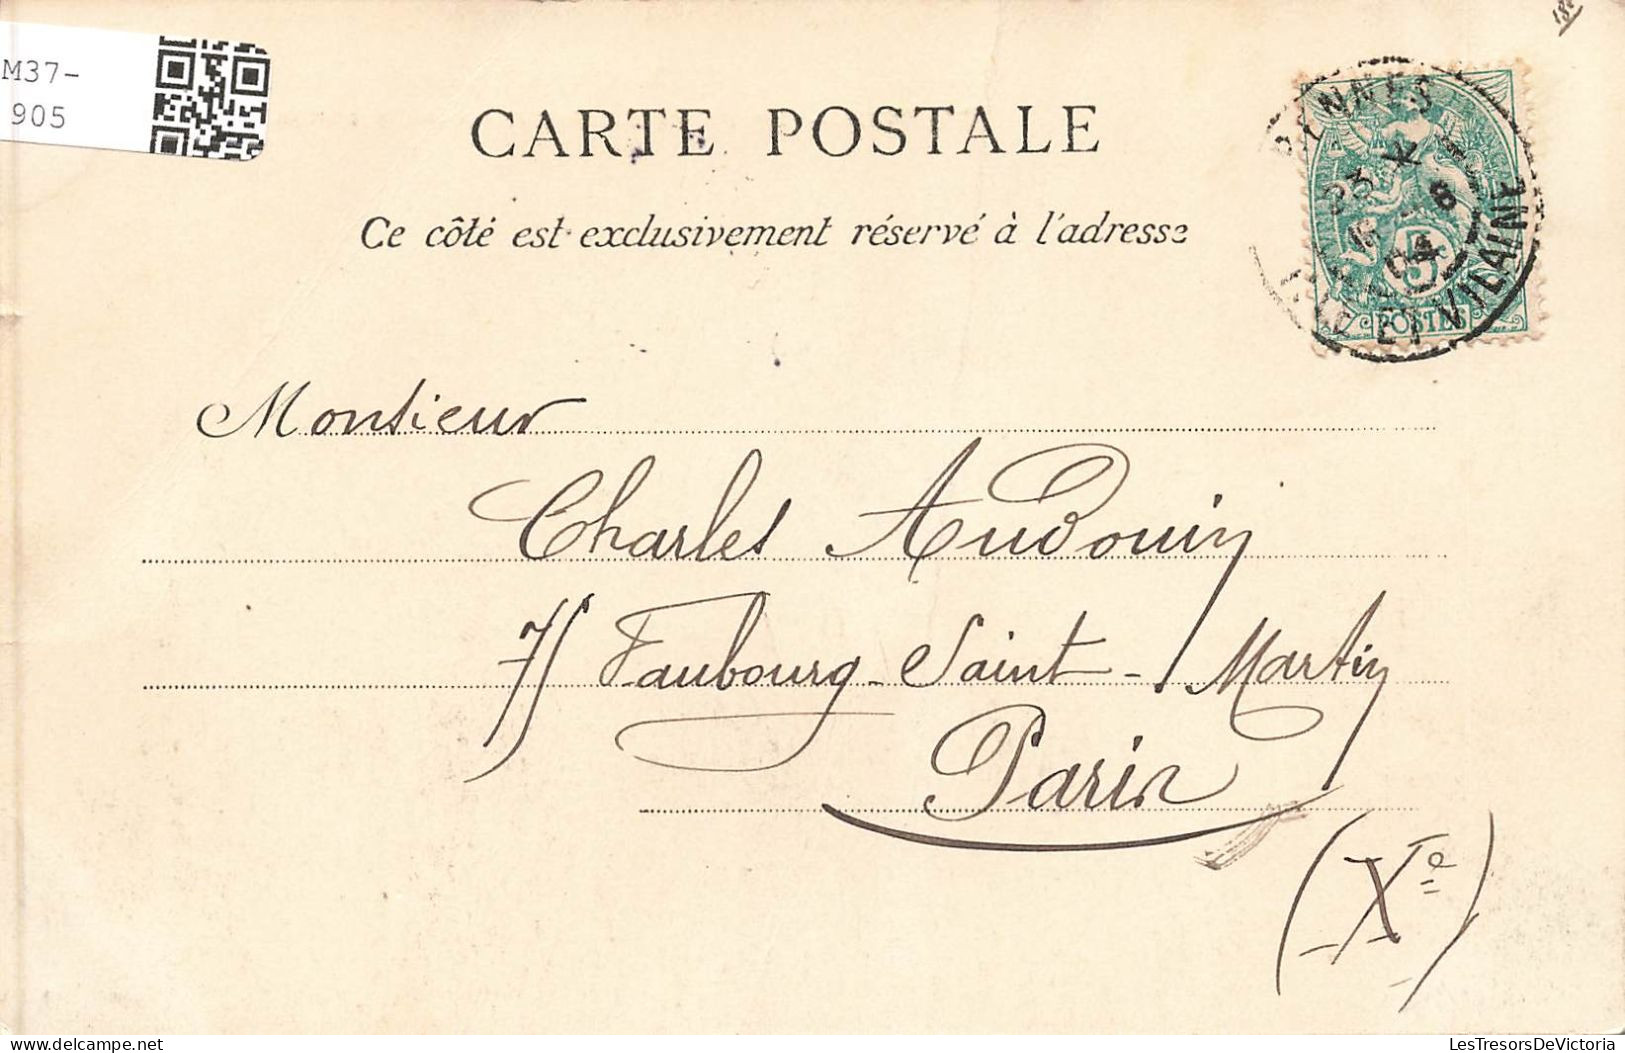 M37-
905
CARTE POSTALE
Ce côté est exclusivement réservé à l'adresse
RENNES
ILLE ET VILAINE
04
5
POSTES
Monsieur
Charles Audouin
Faubourg-Saint-Martin
Paris
(Xe)
LesTresorsDeVictoria
delcampe.net